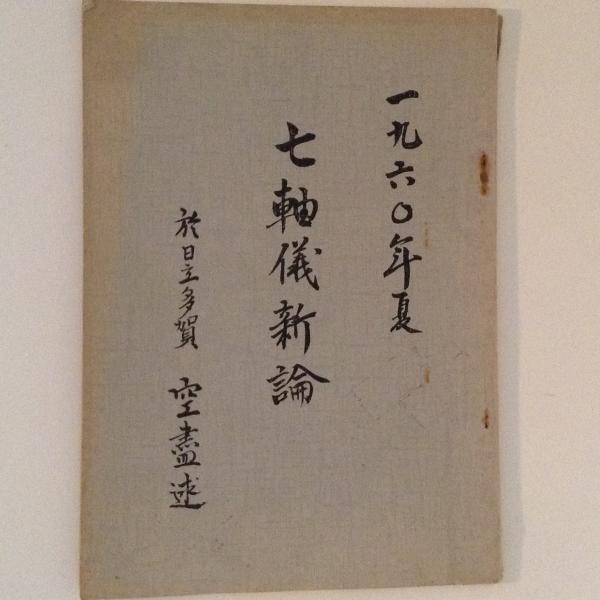 一九六〇年夏
七軸儀新論
於日立多賀 空盡述